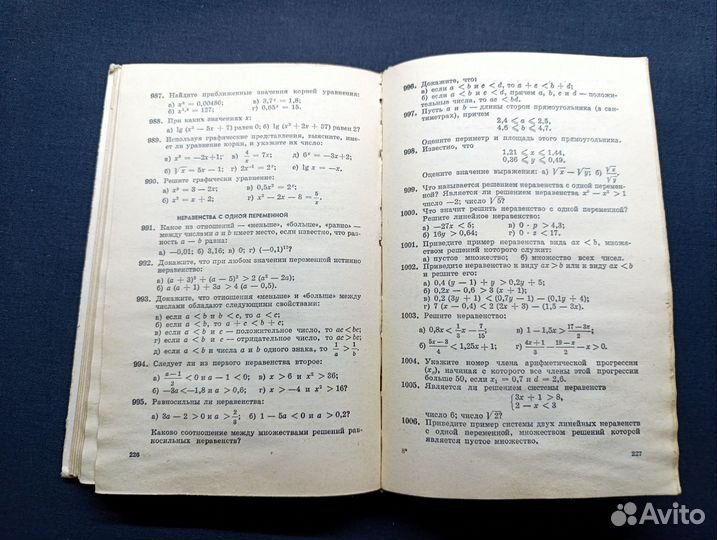 987. Найдите приближенные значения корней уравнения:
а) x⁴ = 0,00486; в) 3,7ˣ = 1,8;
г) 0,65ˣ = 15.
988. При каких значениях x:
а) lg (x² − 5x + 7) равен 0; б) lg (x² + 2x + 37) равен 2?
989. Используя графические представления, выясните, имеет
ли уравнение корни, и укажите их число:
а) x² = −2x+1; в) 4/x = 7x; д) 6ˣ = −3x+2;
е) lg x = −x.
990. Решите графически уравнение:
а) x² = 3 − 2x; в) 0,5x² = 2ˣ;
б) x³ = x + 2; г) x² − 2x − 8 = 5/x.
НЕРАВЕНСТВА С ОДНОЙ ПЕРЕМЕННОЙ
991. Какое из отношений — «меньше», «больше», «равно» —
между числами a и b имеет место, если известно, что раз-
ность a − b равна:
992. Докажите, что при любом значении переменной истинно
неравенство:
а) (a + 3)² + (a − 5)² > 2 (a² − 2a);
б) a (a + 1) + 3a > 4 (a − 0,5).
993. Докажите, что отношения «меньше» и «больше» между
числами обладают следующими свойствами:
а) если a < b и b < c, то a < c;
б) если a < b, то a + c < b + c;
в) если a < b и c — положительное число, то ac < bc;
г) если a < b и c — отрицательное число, то ac > bc;
д) если a < b и числа a и b одного знака, то 1/a > 1/b.
994. Следует ли из первого неравенства второе:
а) (a−1)/2 < 0 и a − 1 < 0; в) x > 6 и x² > 36;
б) −3a < −1,8 и a > 0,6; г) x > −4 и x² > 16?
995. Равносильны ли неравенства:
а) 3a − 2 > 0 и a > 2/3; б) 1 − 5a < 0 и a > 0,2?
Каково соотношение между множествами решений рав-
носильных неравенств?
226
996. Докажите, что:
а) если a < b и c < d, то a + c < b + d;
б) если a < b и c < d, причем a, b, c и d — положи-
тельные числа, то ac < bd.
997. Пусть a и b — длины сторон прямоугольника (в сан-
тиметрах), причем
2,4 ⩽ a ⩽ 2,5,
4,6 ⩽ b ⩽ 4,7.
Оцените периметр и площадь этого прямоугольника.
998. Известно, что
1,21 ⩽ x ⩽ 1,44,
0,36 ⩽ y ⩽ 0,49.
Оцените значение выражения: а) √x − √y; б) √x/√y.
999. Что называется решением неравенства с одной перемен-
ной? Является ли решением неравенства x² − x³ > 1
число −2; число √5?
1000. Что значит решить неравенство с одной переменной?
Решите линейное неравенство:
а) −27x < 5; в) 0 · p > 4,3;
б) 16y > 0,64; г) 0 · z < 17.
1001. Приведите пример неравенства вида ax < b, множе-
ством решений которого служит:
а) пустое множество; б) множество всех чисел.
1002. Приведите неравенство к виду ax > b или к виду ax < b
и решите его:
а) 0,4 (y − 1) + y > 0,2y + 5;
б) 0,2x − 0,6 > 3 (x + 1);
в) 0,2 (3y + 1) < (0,7y − 1) − (0,1y + 2);
г) 7 (x − 0,4) < (2x − 3) + (5x + 1).
1003. Решите неравенство:
а) 0,8x < 1/3 − 7/15; в) 1 − 1,5x > (17−3x)/2;
б) (5x−3)/4 < 1,25x + 1; г) (4x+1)/3 − (19−2x)/6 − x > 0.
1004. Укажите номер члена арифметической прогрессии
(xₙ), начиная с которого все члены этой прогрессии
больше 50, если x₁ = 0,7 и d = 2,6.
1005. Является ли решением системы неравенств
{3x + 1 > 8,
2 − x < 3
число 6; число √2?
1006. Приведите пример системы двух линейных неравенств
с одной переменной, множеством решений которой
является пустое множество.
8*
227
Avito